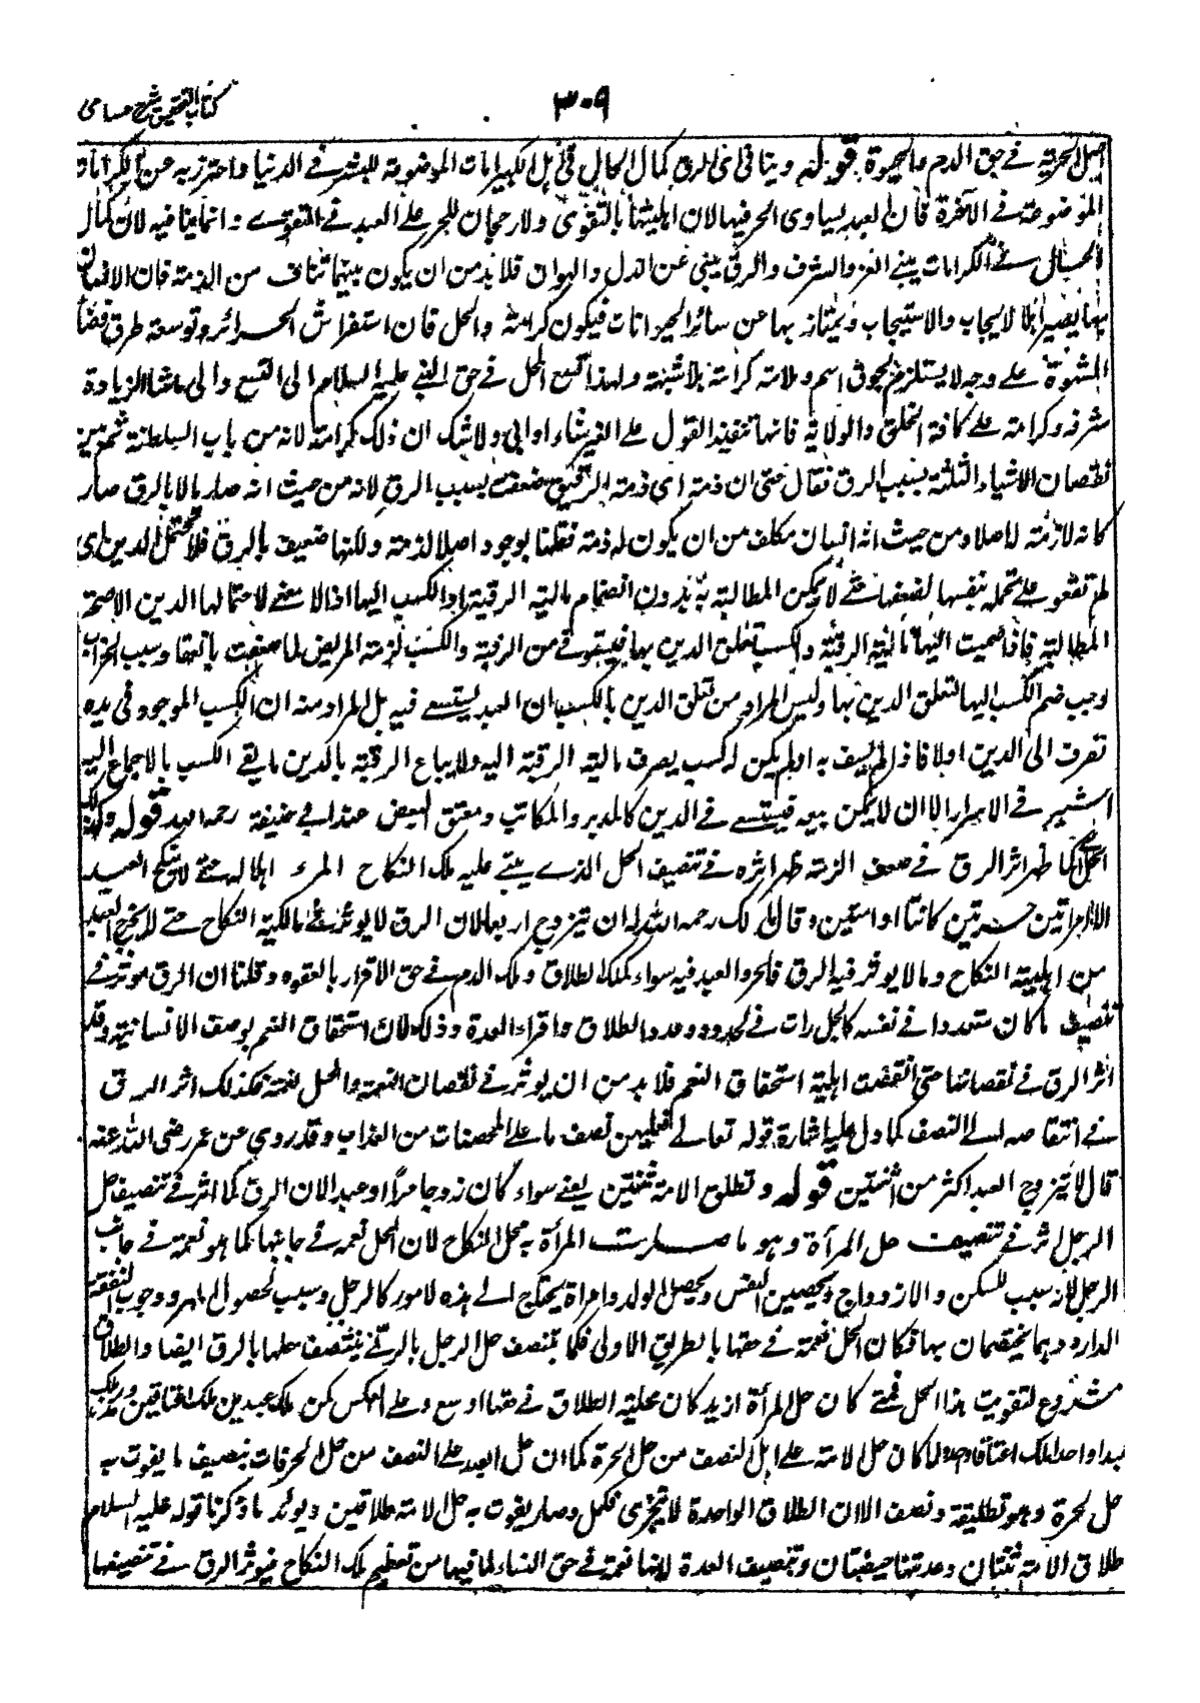 كتاب التحقيق شرح حسامى
٣٠٩
اصل الحرية فى حق الدم والحيوة قوله وينافى الرق كمال الحال فى اهل الكرامات الموضوعة للبشر فى الدنيا واحترز به عن الكرامات
الموضوعة فى الآخرة فان العبد يساوى الحر فيها لان اهليتها بالتقوى ولا رجحان للحر على العبد فى التقوى وانما ينافيه لان كمال
الحال فى الكرامات يبنى العز والشرف والرق يبنى عن الذل والهوان فلا بد من ان يكون بينهما تناف من الذمة فان الانسان
بها يصير اهلا للايجاب والاستيجاب ويمتاز بها عن سائر الحيوانات فيكون كرامة والحل فان استفراش الحرائر وتوسعة طرق قضاء
الشهوة على وجه لا يستلزم لحوق اسم وملامة كرامة بلا شبهة ولهذا اتسع الحل فى حق النبى عليه السلام الى التسع والى ما شاء لزيادة
شرفه وكرامته على كافة الخلق والولاية فانها تنفيذ القول على الغير شاء او ابى ولا شك ان ذلك كرامة لانه من باب السلطنة ثم بين
نقصان الاشياء الثلثة بسبب الرق فقال حتى ان ذمته اى ذمة الرقيق ضعفت بسبب الرق لانه من حيث انه صار مالا بالرق صار
كانه لا ذمة له اصلا ومن حيث انه انسان مكلف من ان يكون له ذمة فقلنا بوجود اصل الذمة ولكنها ضعيفة بالرق فلا تحتمل الدين اى
لم تقو على تحمله بنفسها لضعفها حتى لا يمكن المطالبة به بدون انضمام مالية الرقبة او الكسب اليها اذ لا معنى لاحتمالها الدين الا صحة
المطالبة فاذا ضمت اليها مالية الرقبة والكسب تعلق الدين بها فيستوفى من الرقبة والكسب كذمة المريض لما ضعفت
وجب ضم الكسب اليها لتعلق الدين بها وليس المراد من تعلق الدين بالكسب ان العبد يستسعى فيه بل المراد منه ان الكسب الموجود فى يده
تصرف الى الدين اولا فاذا لم يف به او لم يكن له كسب يصرف مالية الرقبة اليه ولا يباع الرقبة بالدين ما بقى الكسب بالاجماع اليه
اشير فى الاسرار الا ان لا يمكن بيعه فيستسعى فى الدين كالمدبر والمكاتب ومعتق البعض عند ابى حنيفة رحمه الله قوله وكذلك
الحل كما ظهر اثر الرق فى ضعف الذمة ظهر اثره فى تنصيف الحل الذى يبتنى عليه ملك النكاح المرء اهلا له حتى لا ينكح العبد
الا امراتين حرتين كانتا او امتين وقال مالك رحمه الله له ان يتزوج اربعا لان الرق لا يوثر فى مالكية النكاح حتى لا يخرج العبد
من اهلية النكاح وما لا يوثر فيه الرق فالحر والعبد فيه سواء كملك الطلاق وملك الدم فى حق الاقرار بالقود وقلنا ان الرق موثر فى
تنصيف ما كان متعددا فى نفسه كالجلدات فى الحدود وعدد الطلاق واقراء العدة وذلك لان استحقاق النعم بوصف الانسانية وقد
اثر الرق فى نقصانها حتى انتقضت اهلية استحقاق النعم فلا بد من ان يوثر فى نقصان النعمة والحل نعمة فكذلك اثر الرق
فى انتقاصه الى النصف كما دل عليه اشارة قوله تعالى فعليهن نصف ما على المحصنات من العذاب وقد روى عن عمر رضى الله عنه
قال لا يتزوج العبد اكثر من اثنتين قوله وتطلق الامة ثنتين يعنى سواء كان زوجها حرا او عبدا لان الرق كما اثر فى تنصيف حل
الرجل اثر فى تنصيف حل المرأة وهو ما صارت المرأة به محل النكاح لان الحل نعمة فى جانبها كما هو نعمة فى جانب
الرجل لانه سبب للسكن والازدواج وتحصين النفس وتحصيل الولد والمراة يحتاج الى هذه الامور كالرجل وسبب لحصول المهر ووجوب النفقة
الدارة وهما يختصان بها فكان الحل نعمة فى حقها بالطريق الاولى فكما يتنصف حل الرجل بالرق يتنصف حلها بالرق ايضا والطلاق
مشروع لتفويت هذا الحل فمتى كان حل المرأة ازيد كان محلية الطلاق فى حقها اوسع وعلى العكس كمن ملك عبدين ملك اعتاقين ومن ملك
عبدا واحدا ملك اعتاقا واحدا ولما كان حل الامة على النصف من حل الحرة كما ان حل العبد على النصف من حل الحر فات بنصف ما يفوت به
حل الحرة وهو تطليقة ونصف الا ان الطلاق الواحدة لا تتجزى فكمل وصار يفوت به حل الامة طلاقين ويوئد ما ذكرنا قوله عليه السلام
طلاق الامة ثنتان وعدتها حيضتان وتنصيف العدة لانها نعمة فى حق النساء لما فيها من تعظيم ملك النكاح فيوثر الرق فى تنصيفها